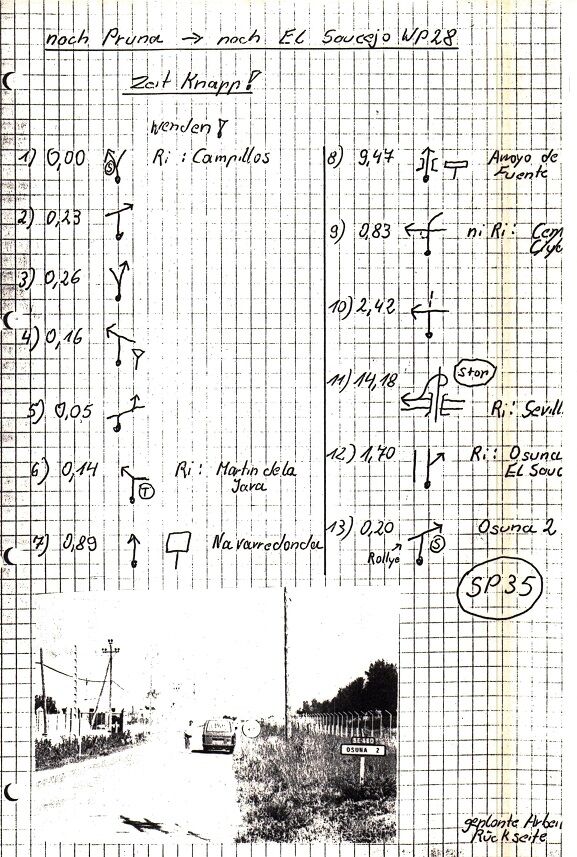 nach Pruna → nach El Saucejo WP28
Zeit Knapp!
Wenden!
1) 0,00 S Ri: Campillos
2) 0,23
3) 0,26
4) 0,16
5) 0,05
6) 0,14 T Ri: Martin de la
Jara
7) 0,89 Navarredonda
8) 9,47 Arroyo de
Fuente
9) 0,83 ni Ri:
10) 2,42
11) 14,18 Stop
Ri: Sevill
12) 1,70 Ri: Osuna
El Sauc
13) 0,20 S Osuna 2
Rallye
SP35
OSUNA 2
geplante Arbei
Rückseite